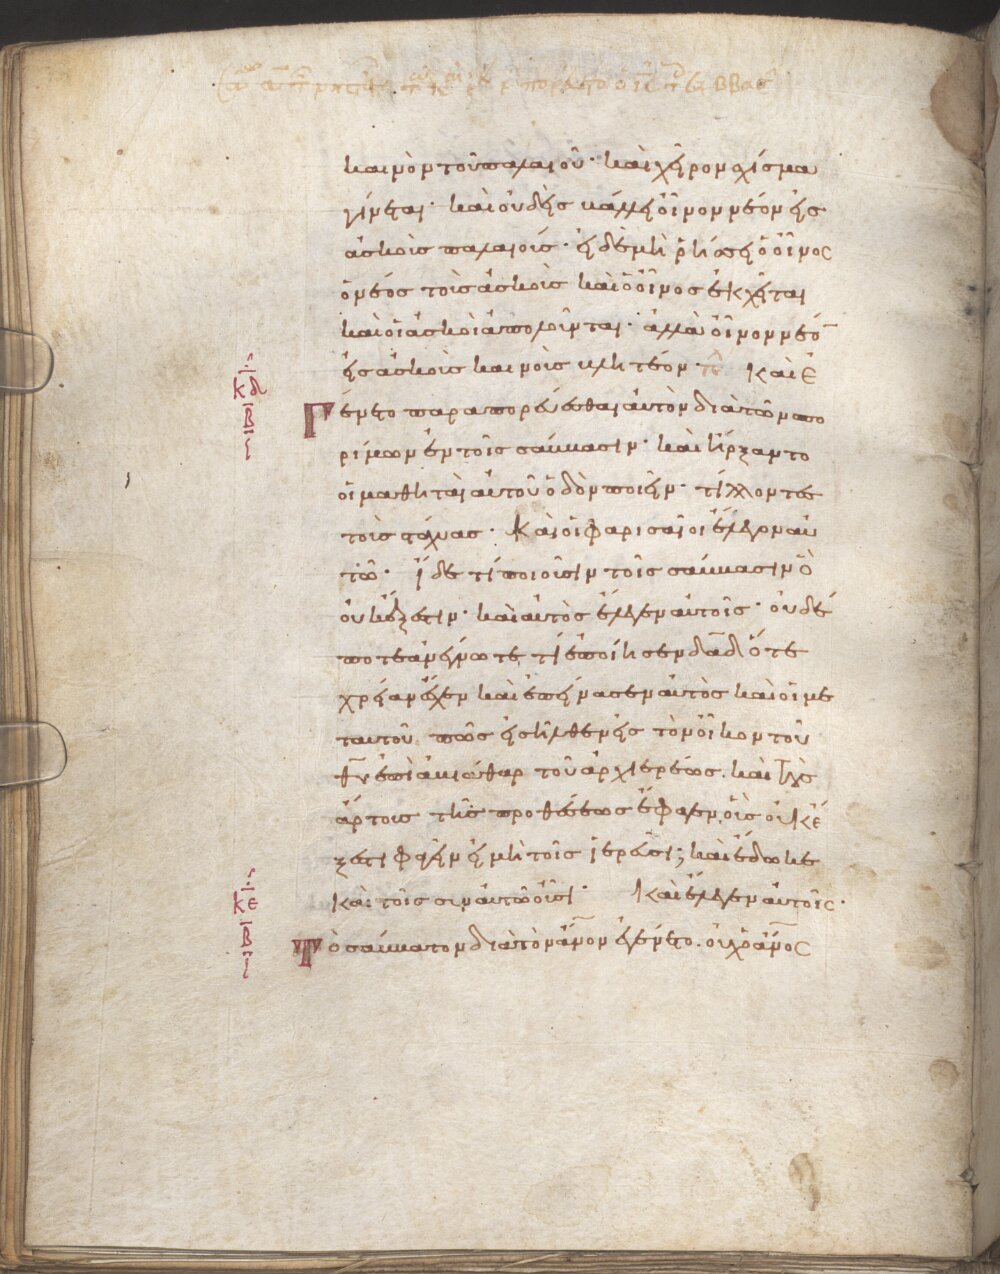 καινὸν τοῦ παλαιοῦ· καὶ χεῖρον σχίσμα
γίνεται· καὶ οὐδεὶς βάλλει οἶνον νέον εἰς
ἀσκοὺς παλαιούς· εἰ δὲ μὴ ῥήσσει ὁ οἶνος
ὁ νέος τοὺς ἀσκοὺς καὶ ὁ οἶνος ἐκχεῖται
καὶ οἱ ἀσκοὶ ἀπολοῦνται· ἀλλὰ οἶνον νέο̅
εἰς ἀσκοὺς καινοὺς βλητέον· Καὶ ἐ
κδ
Γένετο παραπορεύεσθαι αὐτὸν διὰ τῶν σπο
β
ρίμων ἐν τοῖς σάββασιν· καὶ ἤρξαντο
οἱ μαθηταὶ αὐτοῦ ὁδὸν ποιεῖν· τίλλοντες
τοὺς στάχυας· Καὶ οἱ φαρισαῖοι ἔλεγον αὐ
τῶ· ἴδε τί ποιοῦσιν τοῖς σάββασιν ὃ
οὐκ ἔξεστιν· καὶ αὐτὸς ἔλεγεν αὐτοῖς· οὐδέ
ποτε ἀνέγνωτε τί ἐποίησεν δα̅δ ὅτε
χρείαν ἔσχεν καὶ ἐπείνασεν αὐτὸς καὶ οἱ με
τ αὐτοῦ. πῶς εἰσῆλθεν εἰς τὸν οἶκον τοῦ
θ̅υ̅ ἐπὶ ἀβιάθαρ τοῦ ἀρχιερέως. καὶ τοὺς
ἄρτους τῆς προθέσεως ἔφαγεν. οὓς οὐκ ἔ
ξεστι φαγεῖν εἰ μὴ τοῖς ἱερεῦσι; καὶ ἔδωκε
κε
καὶ τοῖς σὺν αὐτῶ οὖσι· Καὶ ἔλεγεν αὐτοῖς·
β
Τὸ σάββατον διὰ τὸν ἄ̅ν̅ο̅ν̅ ἐγένετο. οὐχ ὁ ἄ̅ν̅ο̅ς̅